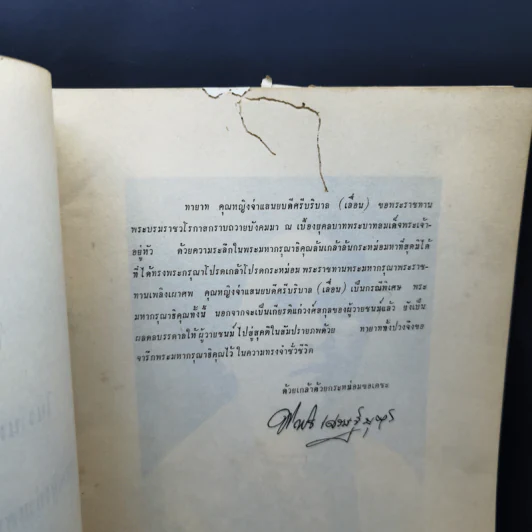 ทายาท คุณหญิงจำแลนยบดีศรีบริบาล (เลื่อน) ขอพระราชทาน
พระบรมราชวโรกาสกราบถวายบังคมมา ณ เบื้องยุคลบาทพระบาทสมเด็จพระเจ้า-
อยู่หัว ด้วยความระลึกในพระมหากรุณาธิคุณล้นเกล้าล้นกระหม่อมหาที่สุดมิได้
ที่ได้ทรงพระกรุณาโปรดเกล้าโปรดกระหม่อม พระราชทานพระมหากรุณาพระราช-
ทานเพลิงเผาศพ คุณหญิงจำแลนยบดีศรีบริบาล (เลื่อน) เป็นกรณีพิเศษ พระ
มหากรุณาธิคุณทั้งนี้ นอกจากจะเป็นเกียรติแก่วงศ์สกุลของผู้วายชนม์แล้ว ยังเป็น
ผลดลบรรดาลให้ผู้วายชนม์ไปสู่สุคติในสัมปรายภพด้วย ทายาททั้งปวงจึงขอ
จารึกพระมหากรุณาธิคุณไว้ในความทรงจำชั่วชีวิต
ด้วยเกล้าด้วยกระหม่อมขอเดชะ